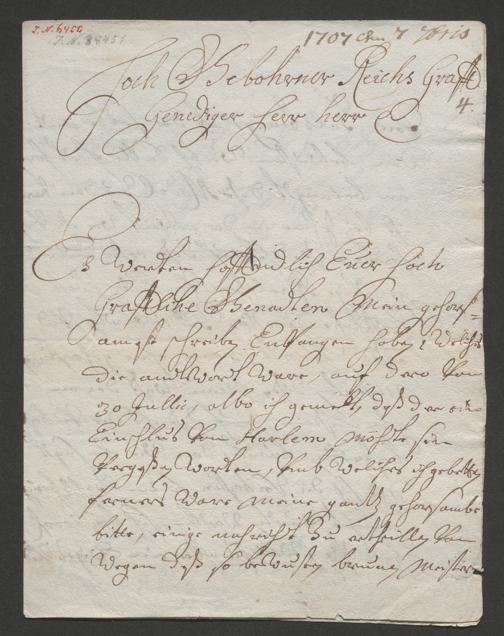 J.N. 6450
J.N. 38451
1707 den 7 7bris
4.
Hoch Gebohrner Reichs Graff
Genediger Herr Herr
Es werden hoffendlich Euer hoch
Graffliche Genadten Mein gehors-
ambst schreiben Entfangen haben, welches
die andtwort ware, auf dero von
30 Jullii, also ich gemelt, daß der ein
Einschlus von Harlem möhte sein
vergessen worden, umb welches ich gebetten
ferners ware meine gantz gehorsambe
bitte, einige nahricht zu ertheillen von
wegen deß so bewusten brunn Meister